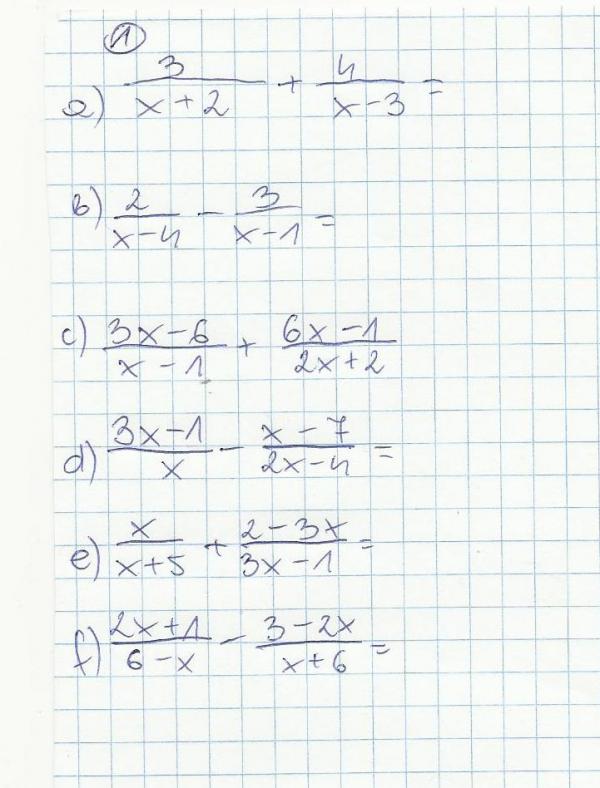 1
a) 3/(x+2) + 4/(x-3) =
b) 2/(x-4) - 3/(x-1) =
c) (3x-6)/(x-1) + (6x-1)/(2x+2)
d) (3x-1)/x - (x-7)/(2x-4) =
e) x/(x+5) + (2-3x)/(3x-1) =
f) (2x+1)/(6-x) - (3-2x)/(x+6) =